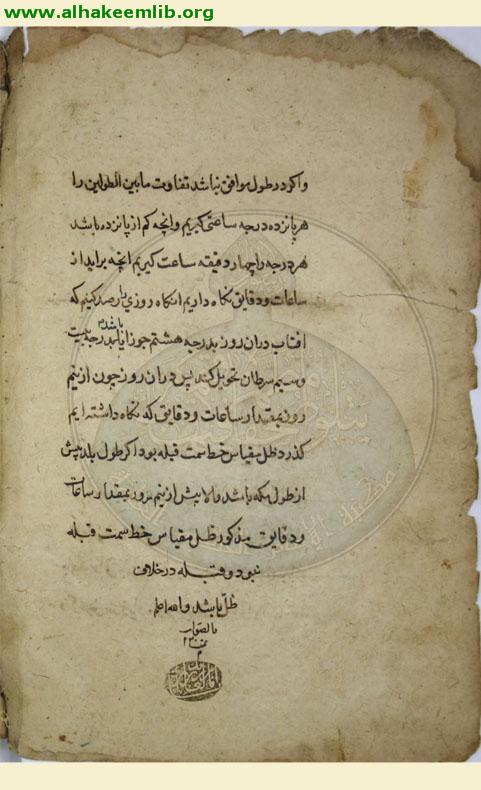 www.alhakeemlib.org
واکر در طول موافق نباشد تفاوت ما بین الطولین را
هر پانزده درجه ساعتی کیریم وانچه کم از پانزده باشد
هر درجه را چهار دقیقه ساعت کیریم انچه براید از
ساعات و دقایق نکاه داریم انکاه روزی را رصد کنیم که
افتاب دران روز بدرجه هشتم جوزا باشد یا بدرجه بیست
وسیم سرطان تحویل کند پس دران روز چون از نیم
روز بمقدار ساعات و دقایق که نکاه داشته ایم
کذرد ظل مقیاس خط سمت قبله بود اکر طول بلد بیش
از طول مکه باشد والا پیش از نیم روز بمقدار ساعات
و دقایق مذکور ظل مقیاس خط سمت قبله
بود و قبله در خلاف
ظل باشد والله اعلم
بالصواب